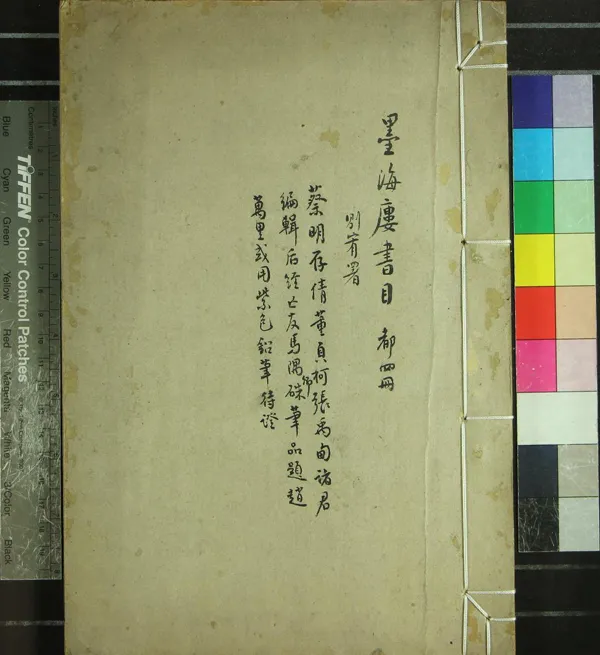 墨海廔書目 都四冊
別宥署
蔡明存倩董貞柯張禹甸諸君
編輯后經亡友馬隅卿硃筆品題趙
萬里或用紫色鉛筆待證
TIFFEN Color Control Patches
Centimetres
Blue Cyan Green Yellow Red Magenta White 3/Color Black